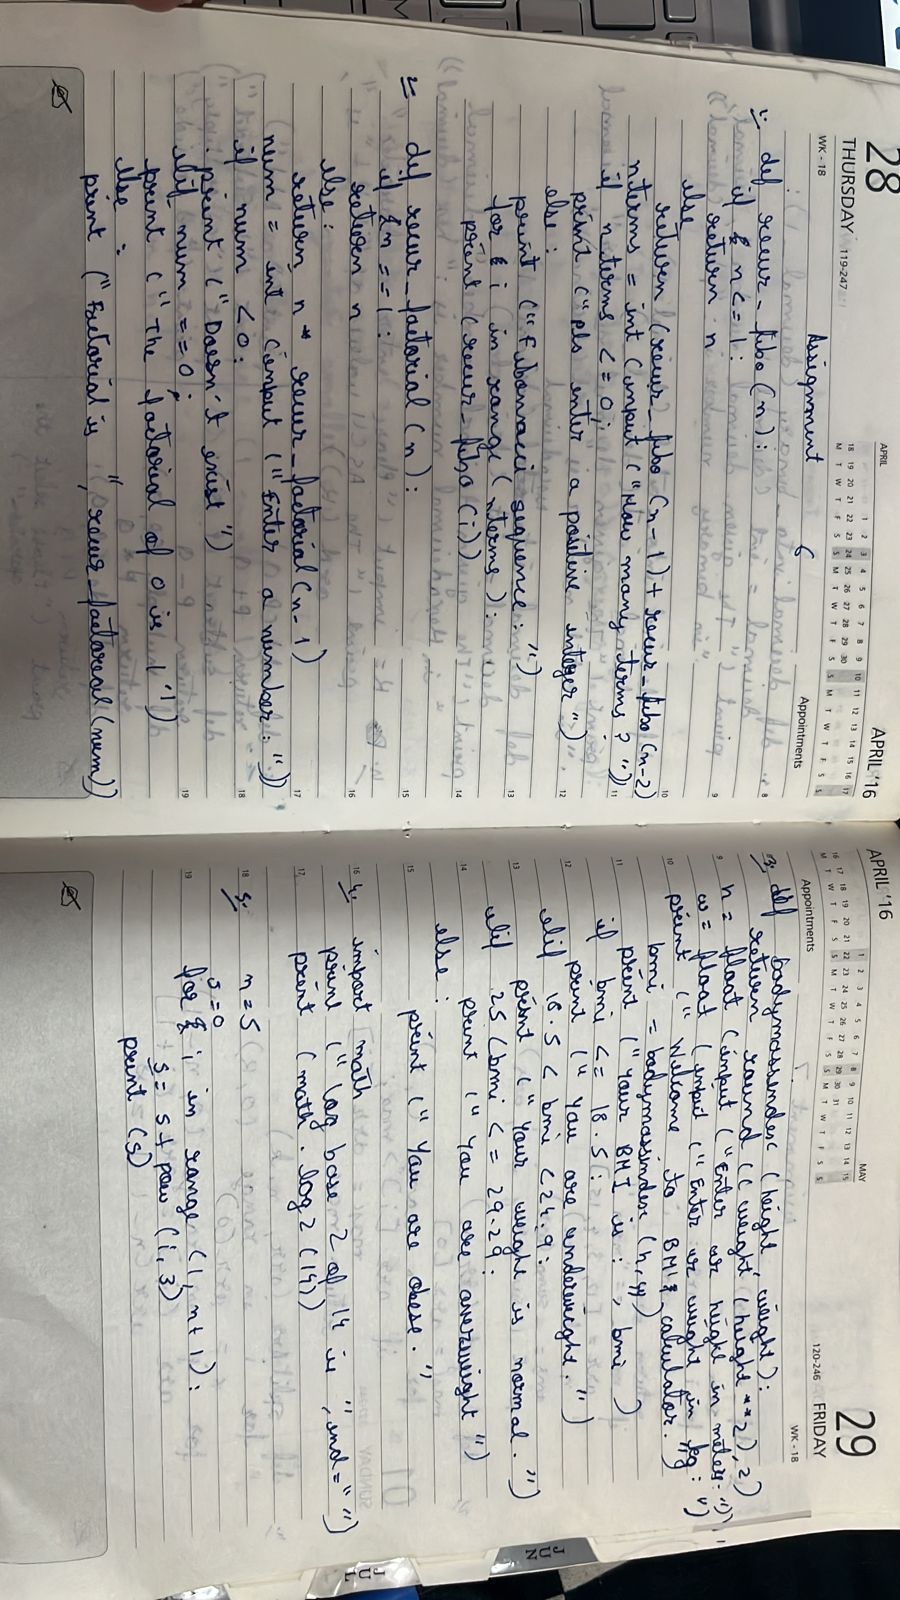 28
THURSDAY
119-247
WK - 18
APRIL
APRIL '16
Appointments
Assignment 6
1. def recur_fibo (n):
if n <= 1:
return n
else
return (recur_fibo (n-1) + recur_fibo (n-2)
nterms = int (input ("How many terms? "))
if nterms <= 0:
print ("Pls enter a positive integer")
else:
print ("Fibonacci sequence: ")
for i in range (nterms):
print (recur_fibo (i))
2. def recur_factorial (n):
if n == 1:
return n
else:
return n * recur_factorial (n-1)
num = int (input ("Enter a number: "))
if num < 0:
print ("Doesn't exist")
elif num == 0:
print ("The factorial of 0 is 1")
else:
print ("Factorial is", recur_factorial (num))
APRIL '16
MAY
Appointments
120-246
FRIDAY
29
WK - 18
3. def bodymassindex (height, weight):
return round ((weight / height **2), 2)
h = float (input ("Enter ur height in meters: "))
w = float (input ("Enter ur weight in kg: ")
print (" Welcome to BMI calculator.")
bmi = bodymassindex (h, w)
print ("Your BMI is: ", bmi)
if bmi <= 18.5:
print (" You are underweight. ")
elif 18.5 < bmi < 24.9:
print (" Your weight is normal. ")
elif 25 < bmi <= 29.29:
print (" You are overweight ")
else:
print (" You are obese. ")
4. import math
print (" log base 2 of 14 is ", end=" ")
print (math.log2 (14))
5. n = 5
s = 0
for i in range (1, n+1):
s = s + pow (i, 3)
print (s)
JUN
JUL